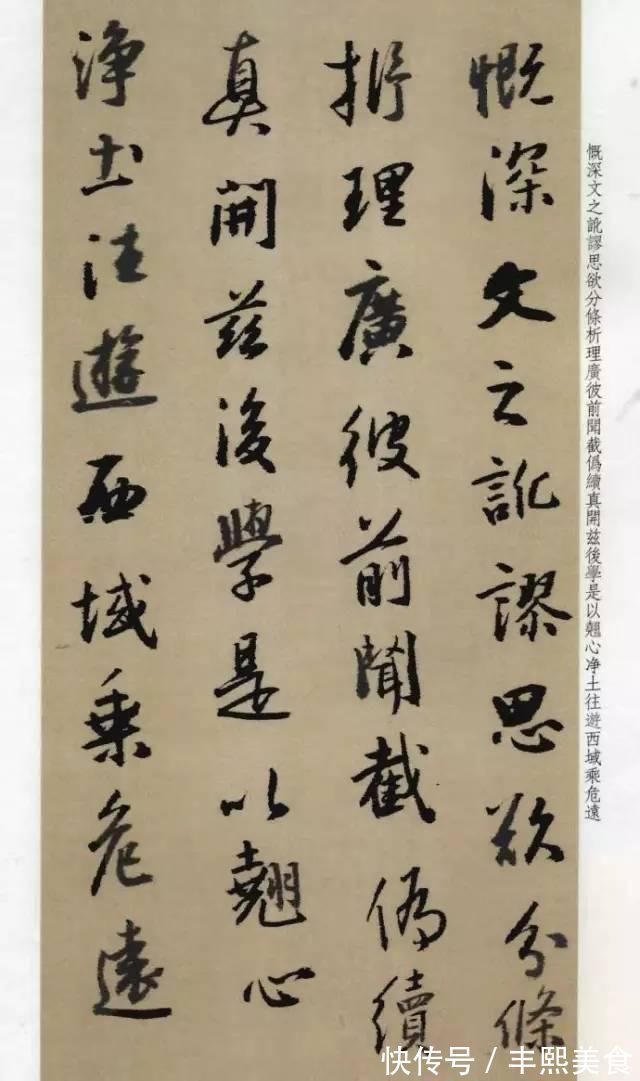 慨深文之訛謬思欲分條
析理廣彼前聞截偽續
真開茲後學是以翹心
淨土往遊西域乘危遠
慨深文之訛謬思欲分條析理廣彼前聞截僞續真開茲後學是以翹心净土往遊西域乘危遠
快传号/丰熙美食